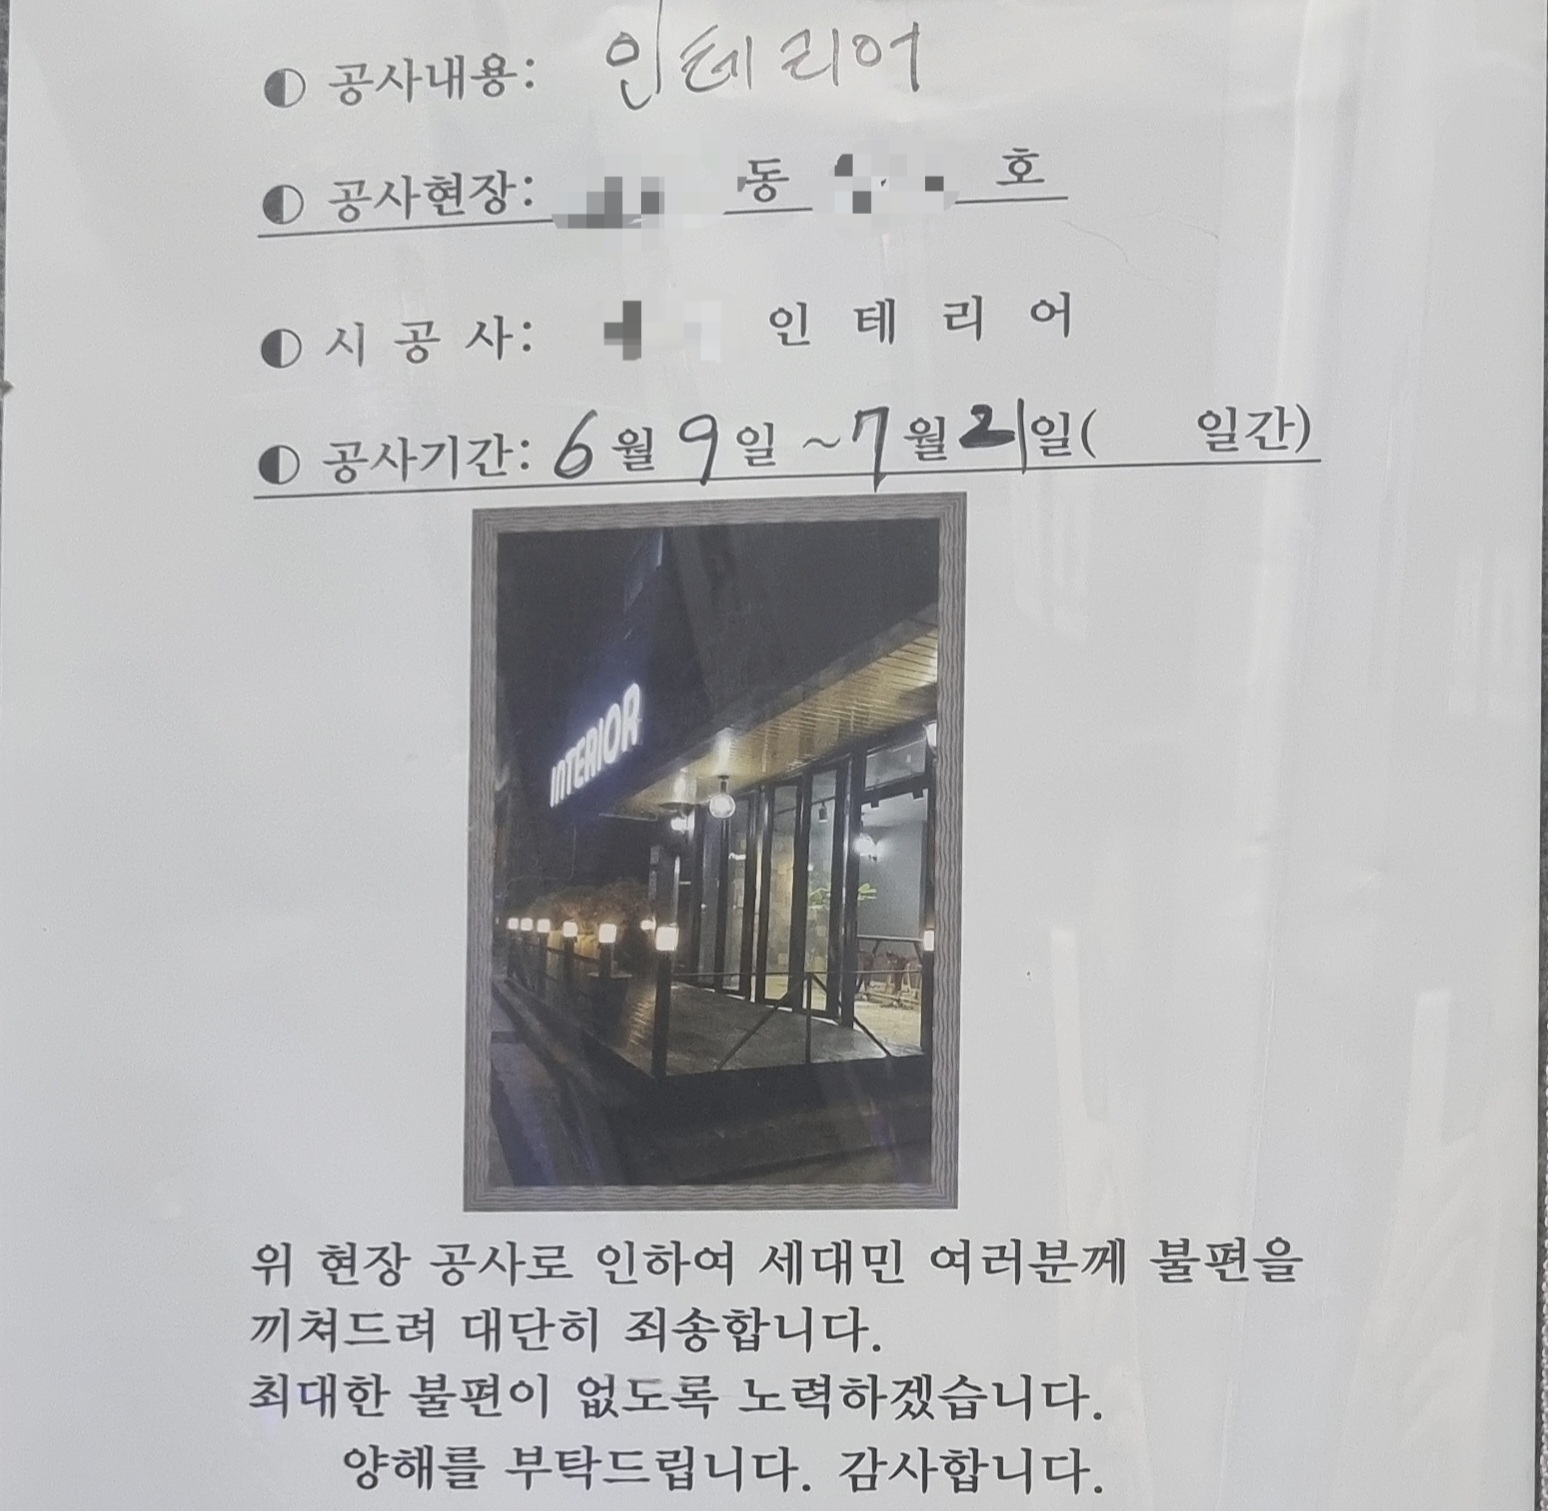 ◐ 공사내용: 인테리어
◐ 공사현장: 동 호
◐ 시 공 사: 인 테 리 어
◐ 공사기간: 6월 9일 ~7월 21일( 일간)
INTERIOR
위 현장 공사로 인하여 세대민 여러분께 불편을
끼쳐드려 대단히 죄송합니다.
최대한 불편이 없도록 노력하겠습니다.
양해를 부탁드립니다. 감사합니다.